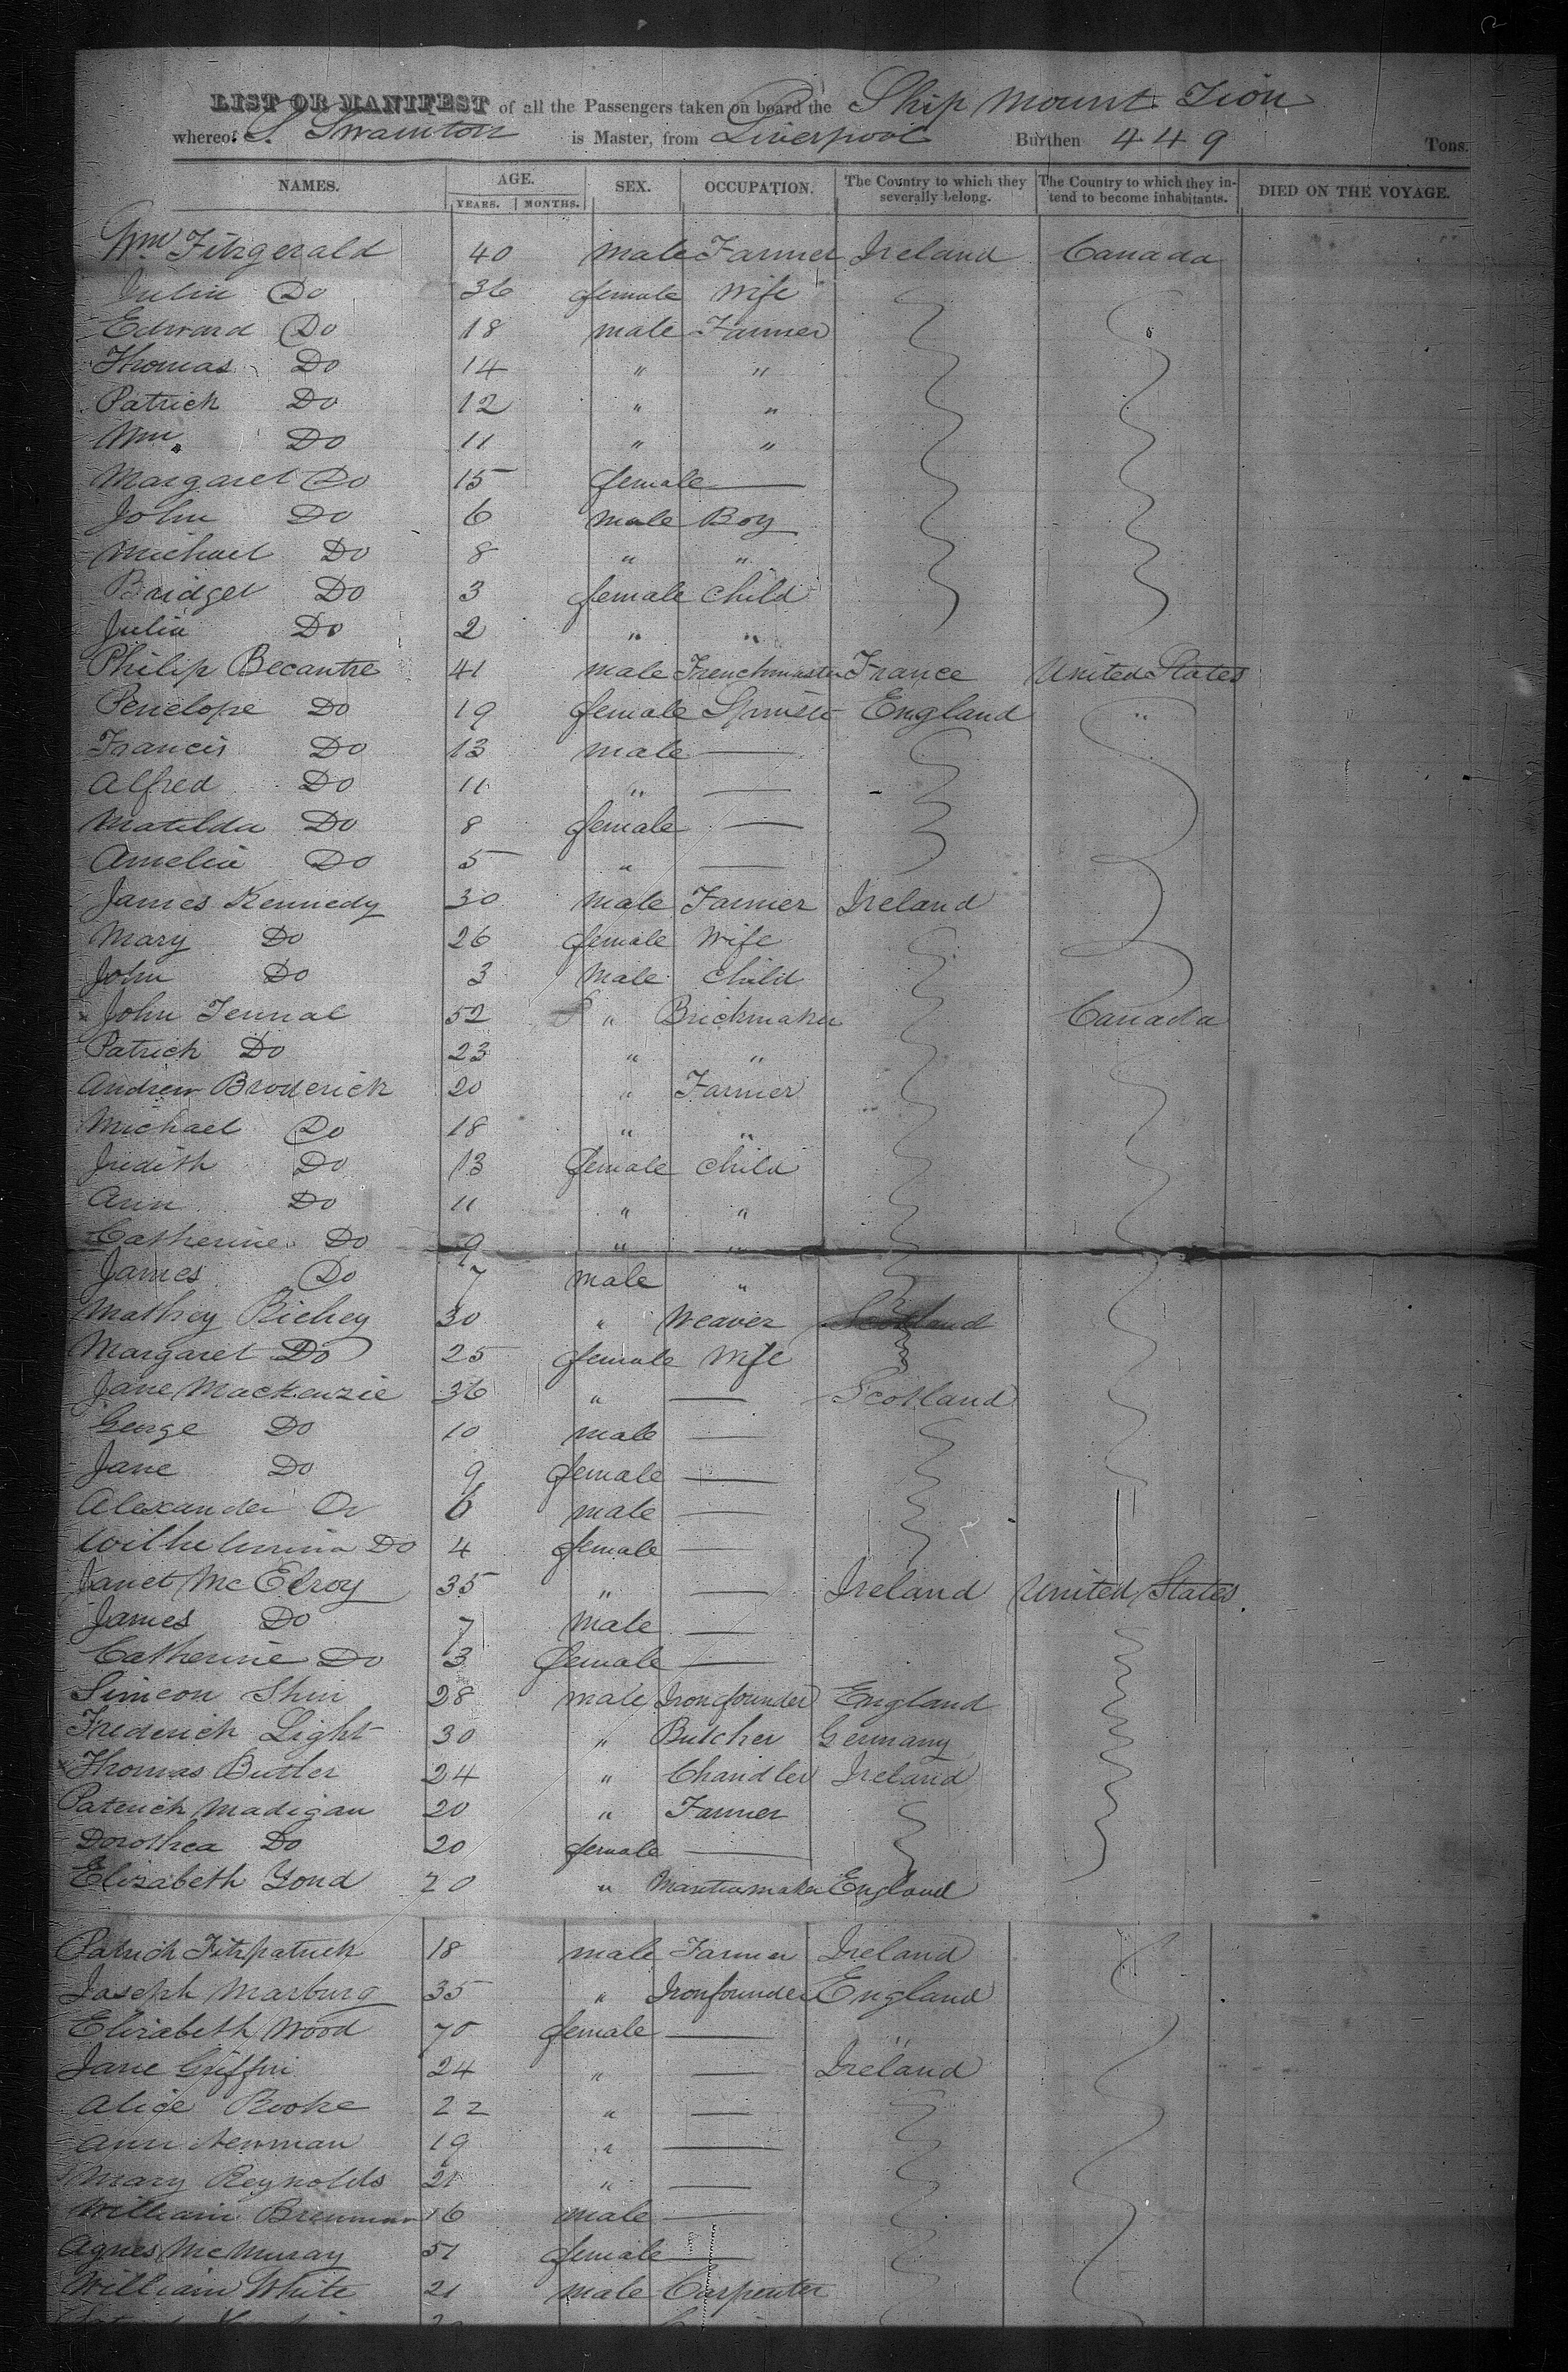 LIST OR MANIFEST of all the Passengers taken on board the Ship Mount Zion
whereof S. Swainton is Master, from Liverpool Burthen 449 Tons.
NAMES. AGE. YEARS. MONTHS. SEX. OCCUPATION. The Country to which they severally belong. The Country to which they intend to become inhabitants. DIED ON THE VOYAGE.
Wm. Fitzgerald 40 male Farmer Ireland Canada
Julia Do 36 female Wife
Edward Do 18 male Farmer
Thomas Do 14 " "
Patrick Do 12 " "
Wm. Do 11 " "
Margaret Do 15 female —
John Do 6 male Boy
Michael Do 8 " "
Bridget Do 3 female child
Julia Do 2 " "
Philip Becantre 41 male Frenchmaster France United States
Penelope Do 19 female England "
Francis Do 13 male —
Alfred Do 11 " —
Matilda Do 8 female —
Amelia Do 5 " —
James Kennedy 30 male Farmer Ireland
Mary Do 26 female Wife
John Do 3 male child
John 52 " Brickmaker Canada
Patrick Do 23 " "
Andrew Broderick 20 " Farmer
Michael Do 18 " "
Judith Do 13 female child
Ann Do 11 " "
Catherine Do 9 " "
James Do 7 male "
Mathey Richey 30 " Weaver Scotland
Margaret Do 25 female Wife
Jane Mackenzie 36 " — Scotland
George Do 10 male —
Jane Do 9 female —
Alexander Do 6 male —
Wilhelmina Do 4 female —
Janet McElroy 35 " — Ireland United States.
James Do 7 male —
Catherine Do 3 female —
Simeon 28 male Ironfounder England
Frederick Light 30 " Butcher Germany
Thomas Butler 24 " Chandler Ireland
Patrick Madigan 20 " Farmer
Dorothea Do 20 female —
Elizabeth 20 " Mantuamaker England
Patrick Fitzpatrick 18 male Farmer Ireland
Joseph Marburg 35 " Ironfounder England
Elizabeth Wood 70 female — "
Jane Griffin 24 " — Ireland
Alice Rooke 22 " —
Ann Newman 19 " —
Mary Reynolds 21 " —
William Brennan 16 male —
Agnes McMuray 51 female —
William White 21 male Carpenter